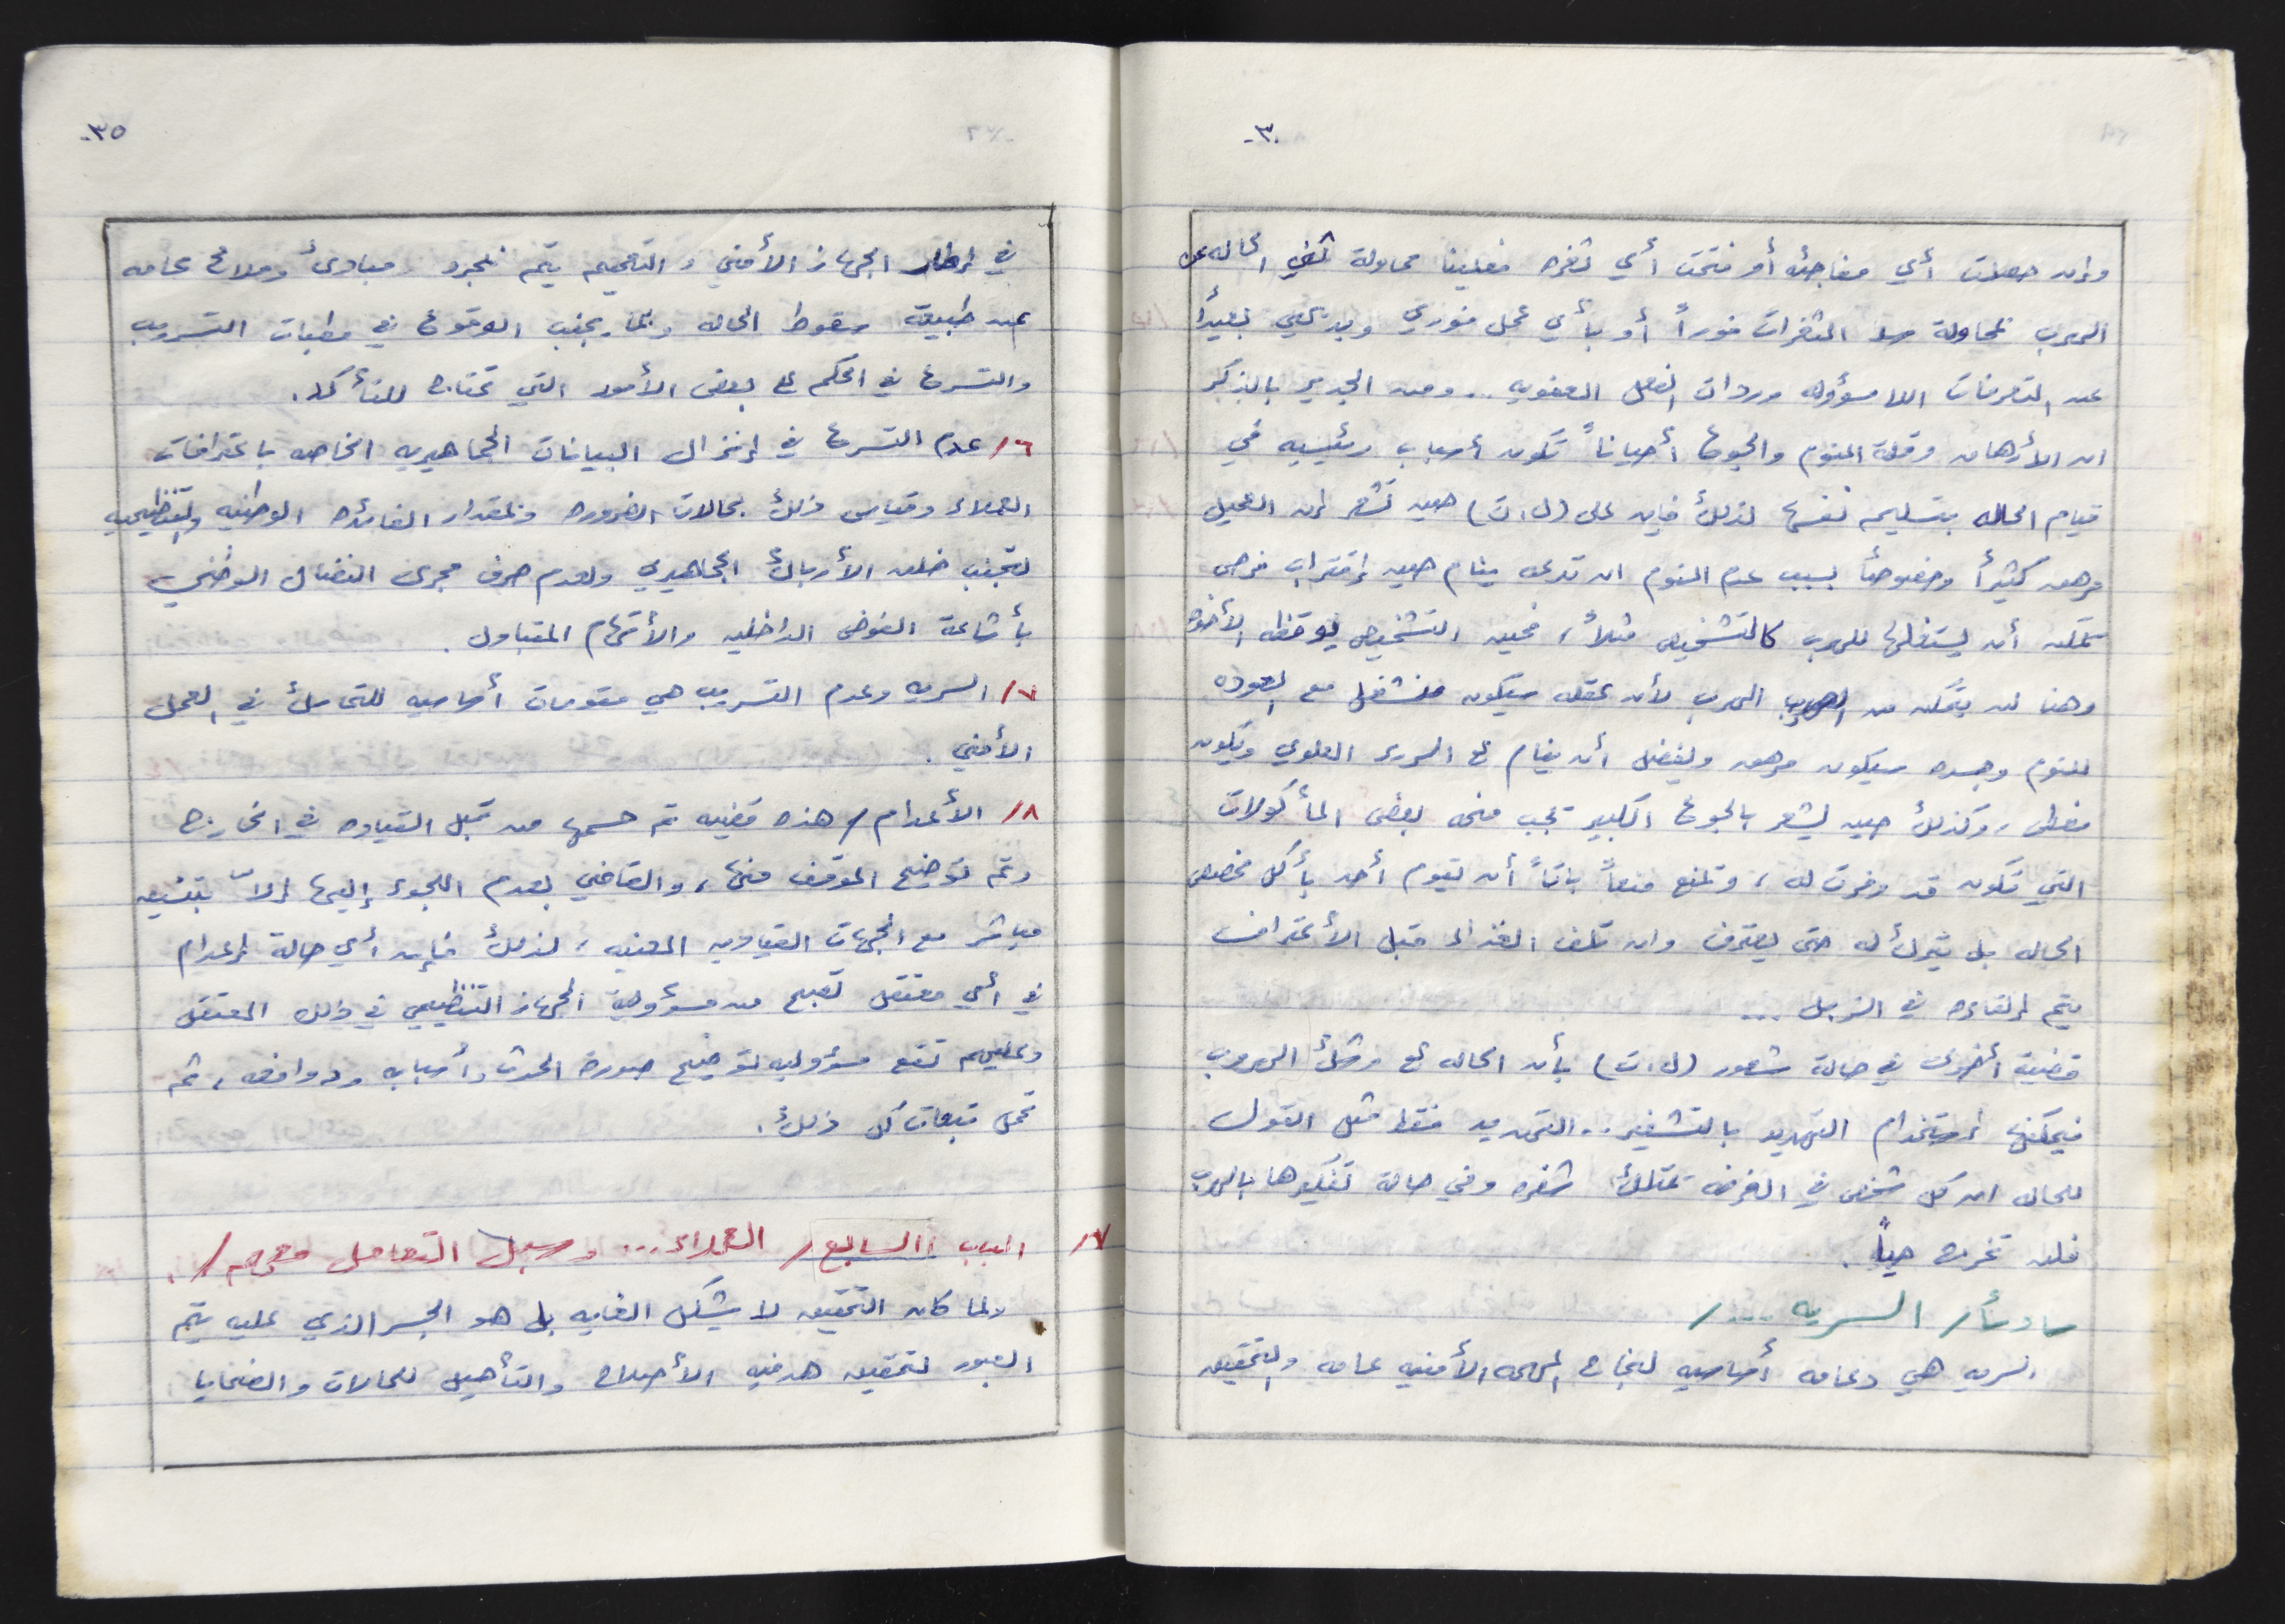 -٣٠
وإن حصلت أي مفاجئه أو فتحت أي ثغره فعلينا محاولة ثني الحاله عن
الهرب بمحاولة سد الثغرات فوراً أو بأي عمل فوري وبديهي بعيداً
عن التصرفات اللامسؤوله وردات الفعل العفويه .. ومن الجدير بالذكر
ان الأرهاق وقلة النوم والجوع أحياناً تكون أسباب رئيسيه في
قيام الحاله بتسليم نفسها لذلك فإن على (ل.ت) حين تشعر إن العميل
مرهق كثيراً وخصوصاً بسبب عدم النوم ان تدعه ينام حين إقتراب فرص
تمكنه أن يستغلها للهرب كالتشخيص مثلاً، فحين التشخيص يوقظه الأخوه
وهنا لن يتمكن من الهرب لأن عقله سيكون منشغل مع العوده
للنوم وجسده سيكون مرهق ويفضل أن ينام ع السرير العلوي ويكون
مغطى، وكذلك حين يشعر بالجوع الكبير يجب منحه بعض المأكولات
التي تكون قد وفرت له، وتمنع منعاً باتاً أن يقوم أحد بأكل مخصص
الحاله بل يترك له حتى يعترف وان تلف الغذاء قبل الأعتراف
يتم إلقاءه في الزبل ...
قضية أخرى في حالة شعور (ل.ت) بأن الحاله ع وشك الهروب
فيمكنها إستخدام التهديد بالتشفير .. التهديد فقط مثل القول
للحاله ان كل شخص في الغرفه يمتلك شفره وفي حالة تفكيرها بالهرب
فلن تخرج حياً.
سادساً/ السريه .../
السريه هي دعامه أساسيه لنجاح المهمه الأمنيه عامه والتحقيق
-٣٥
في إطار الجهاز الأمني، والتعميم يتم لمجرد مبادئ وملامح عامه
عن طبيعة سقوط الحاله وبما يجنب الوقوع في مطبات التسريب
والتسرع في الحكم ع بعض الأمور التي تحتاج للتأكد.
٦/ عدم التسرع في إنزال البيانات الجماهيريه الخاصه باعترافات
العملاء وقياس ذلك بحالات الضروره وبمقدار الفائده الوطنيه والتنظيميه
لتجنب خلق الأرباك الجماهيري ولعدم حرف مجرى النضال الوطني
بأشاعة الفوضى الداخليه والأتهام المتبادل.
٧/ السريه وعدم التسريب هي مقومات أساسيه للتماسك في العمل
الأمني.
٨/ الأعدام/ هذه قضيه تم حسمها من قبل القياده في الخارج
وتم توضيح الموقف منها، والقاضي بعدم اللجوء إليها إلاّ بتنسيق
مباشر مع الجهات القياديه المعنيه، لذلك فإن أي حالة إعدام
في أي معتقل تصبح من مسؤولية الجهاز التنظيمي في ذلك المعتقل
وعليهم تقع مسؤوليه توضيح صورة الحدث وأسبابه ودوافعه، ثم
تحمل تبعات كل ذلك.
٧/ الباب السابع/ العملاء... وسبل التعامل معهم/.
ولما كان التحقيق لا يشكل الغايه بل هو الجسر الذي عليه يتم
العبور لتحقيق هدفيه الأصلاح والتأهيل للحالات والضحايا